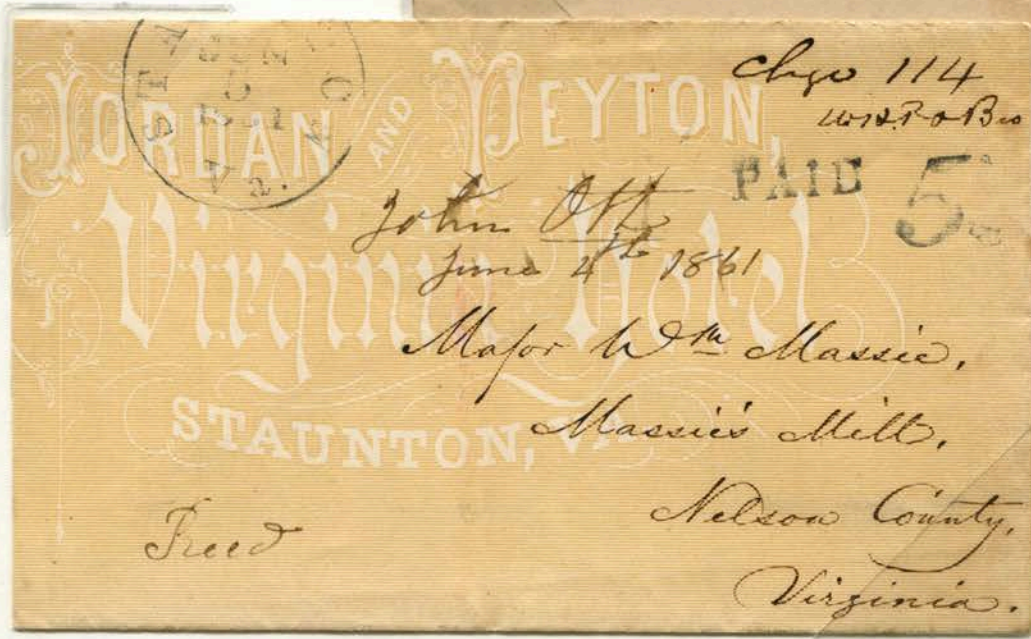 JORDAN AND PEYTON,
Virginia Hotel
STAUNTON, VA
STAUNTON
JUN
5
1861
Va.
Chge 114
PAID 5
John Ott
June 4th 1861
Major Wm Massie,
Massie's Mill,
Nelson County,
Virginia.